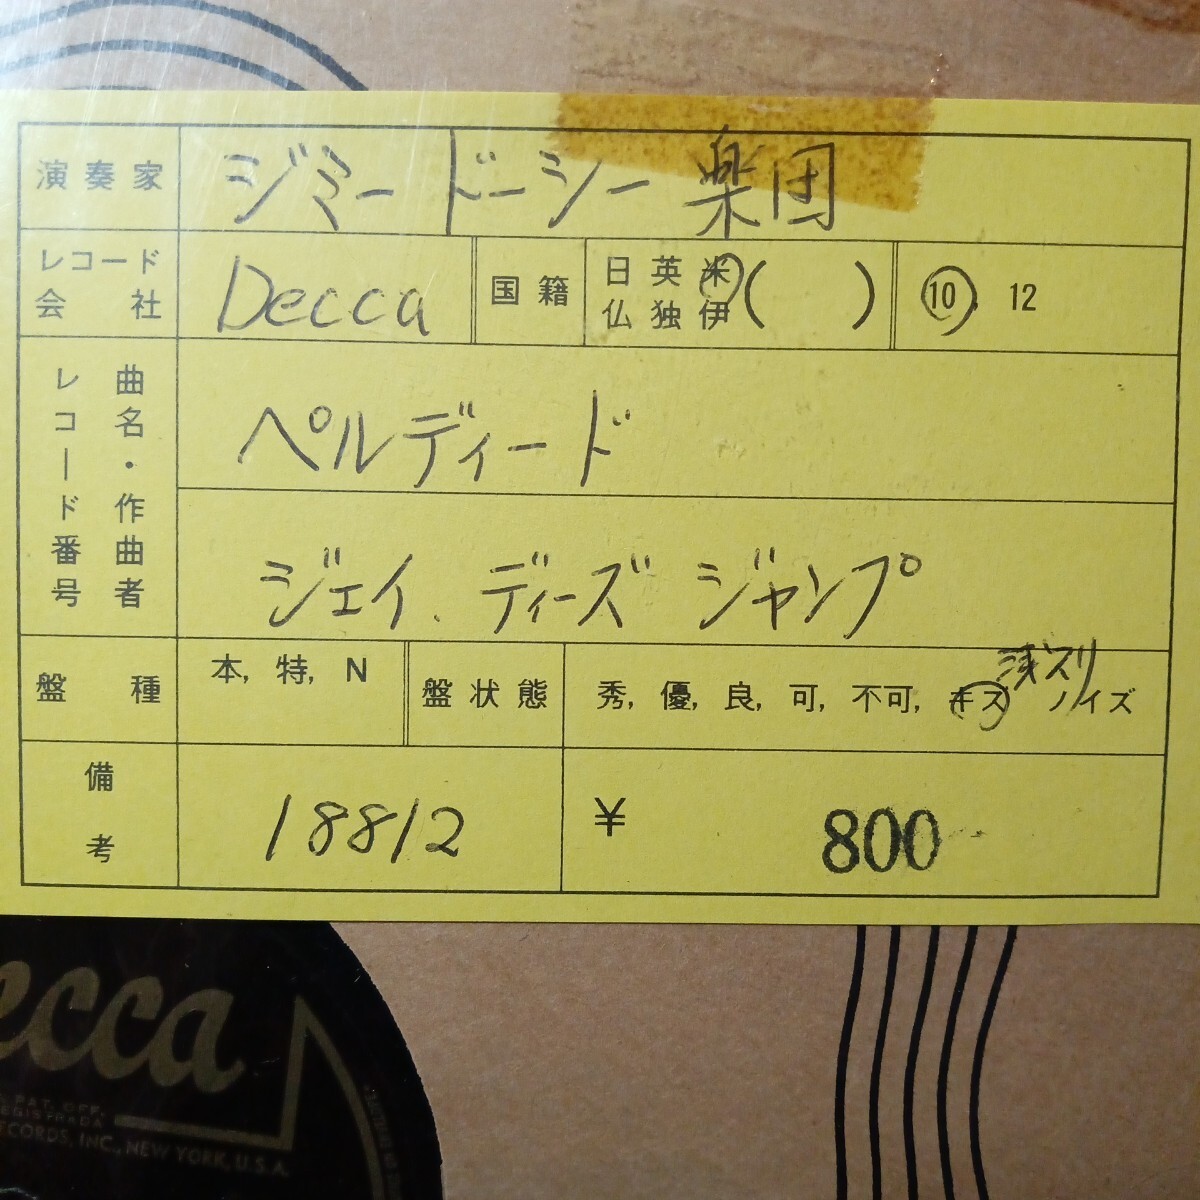 演奏家 ジミー ドーシー 楽団
レコード会社 Decca 国籍 日 英 米 仏 独 伊 ( ) 10. 12
曲名・作曲者 レコード番号
ペルディード
ジェイ. ディーズ ジャンプ
盤種 本, 特, N 盤状態 秀, 優, 良, 可, 不可, キズ ノイズ
浅スリ
備考 18812 ¥ 800
ecca
PAT. OFF.
ECORDS, INC., NEW YORK, U.S.A.